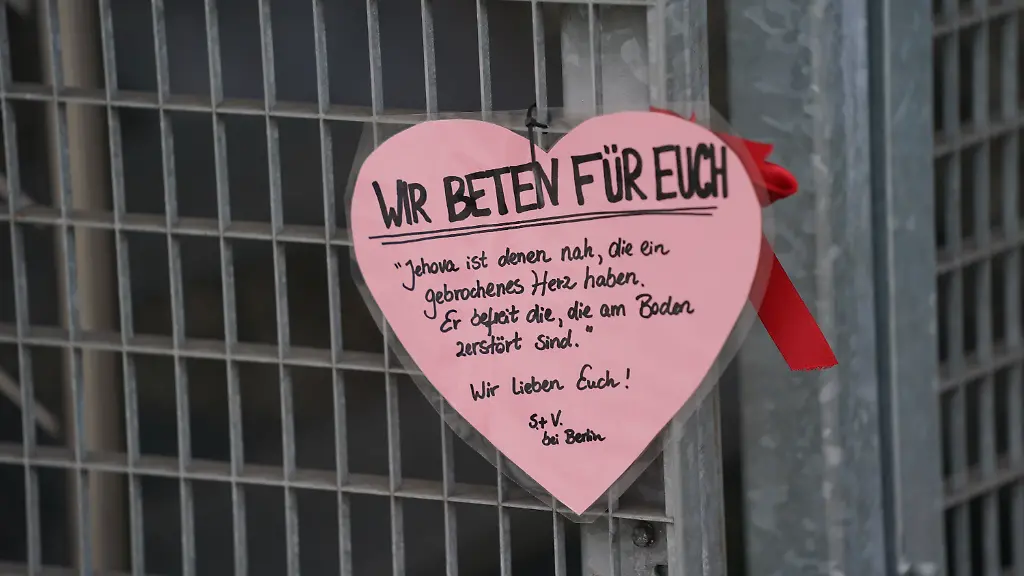 WIR BETEN FÜR EUCH
"Jehova ist denen nah, die ein
gebrochenes Herz haben.
Er befreit die, die am Boden
zerstört sind."
Wir lieben Euch!
S.+V.
bei Berlin